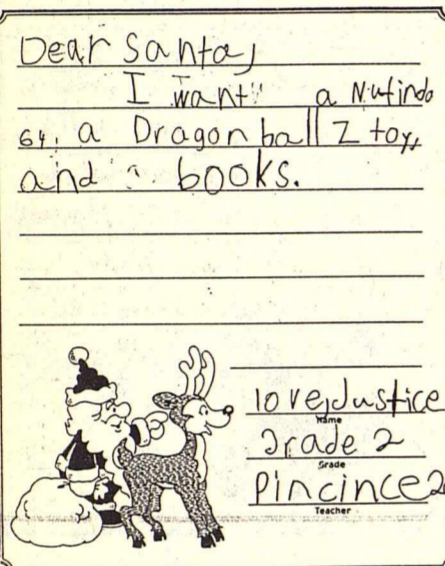 Dear Santa,
I want a Nutindo
64, a Dragon ball Z toy,
and books.
love, Justice
Name
Grade 2
Grade
Pincince2
Teacher